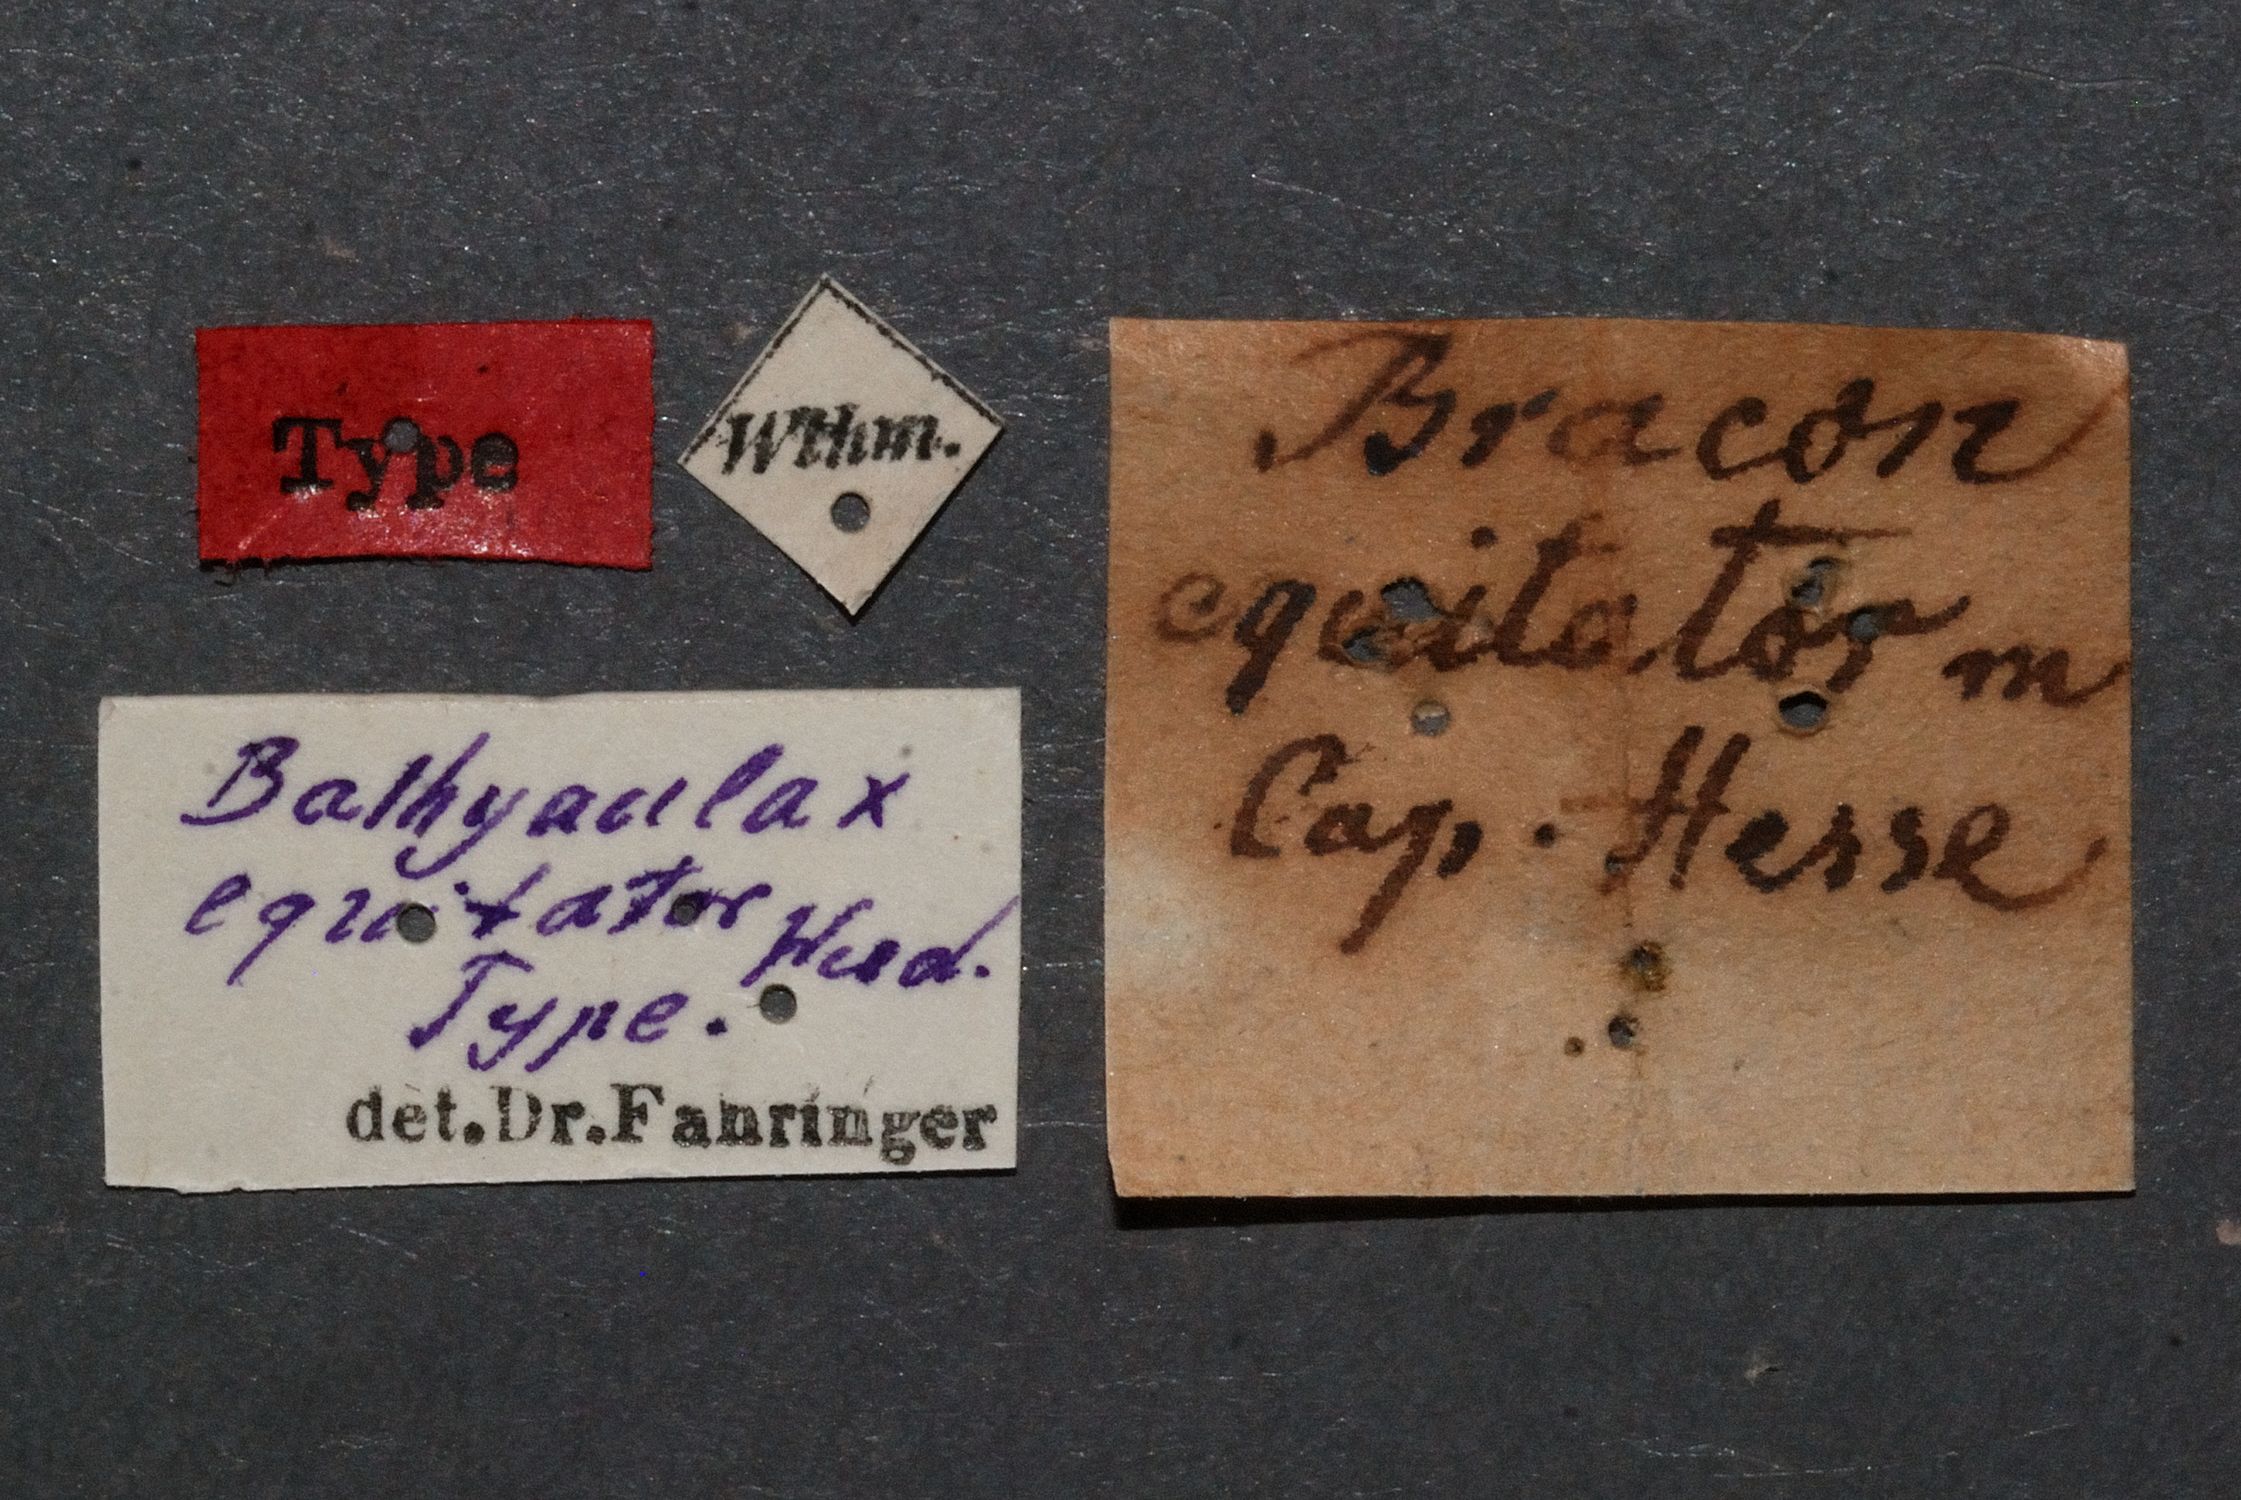 Type
Wthm.
Bracon
equitator m
Cap. Hesse
Bathyaulax
equitator
Type.
det. Dr. Fahringer